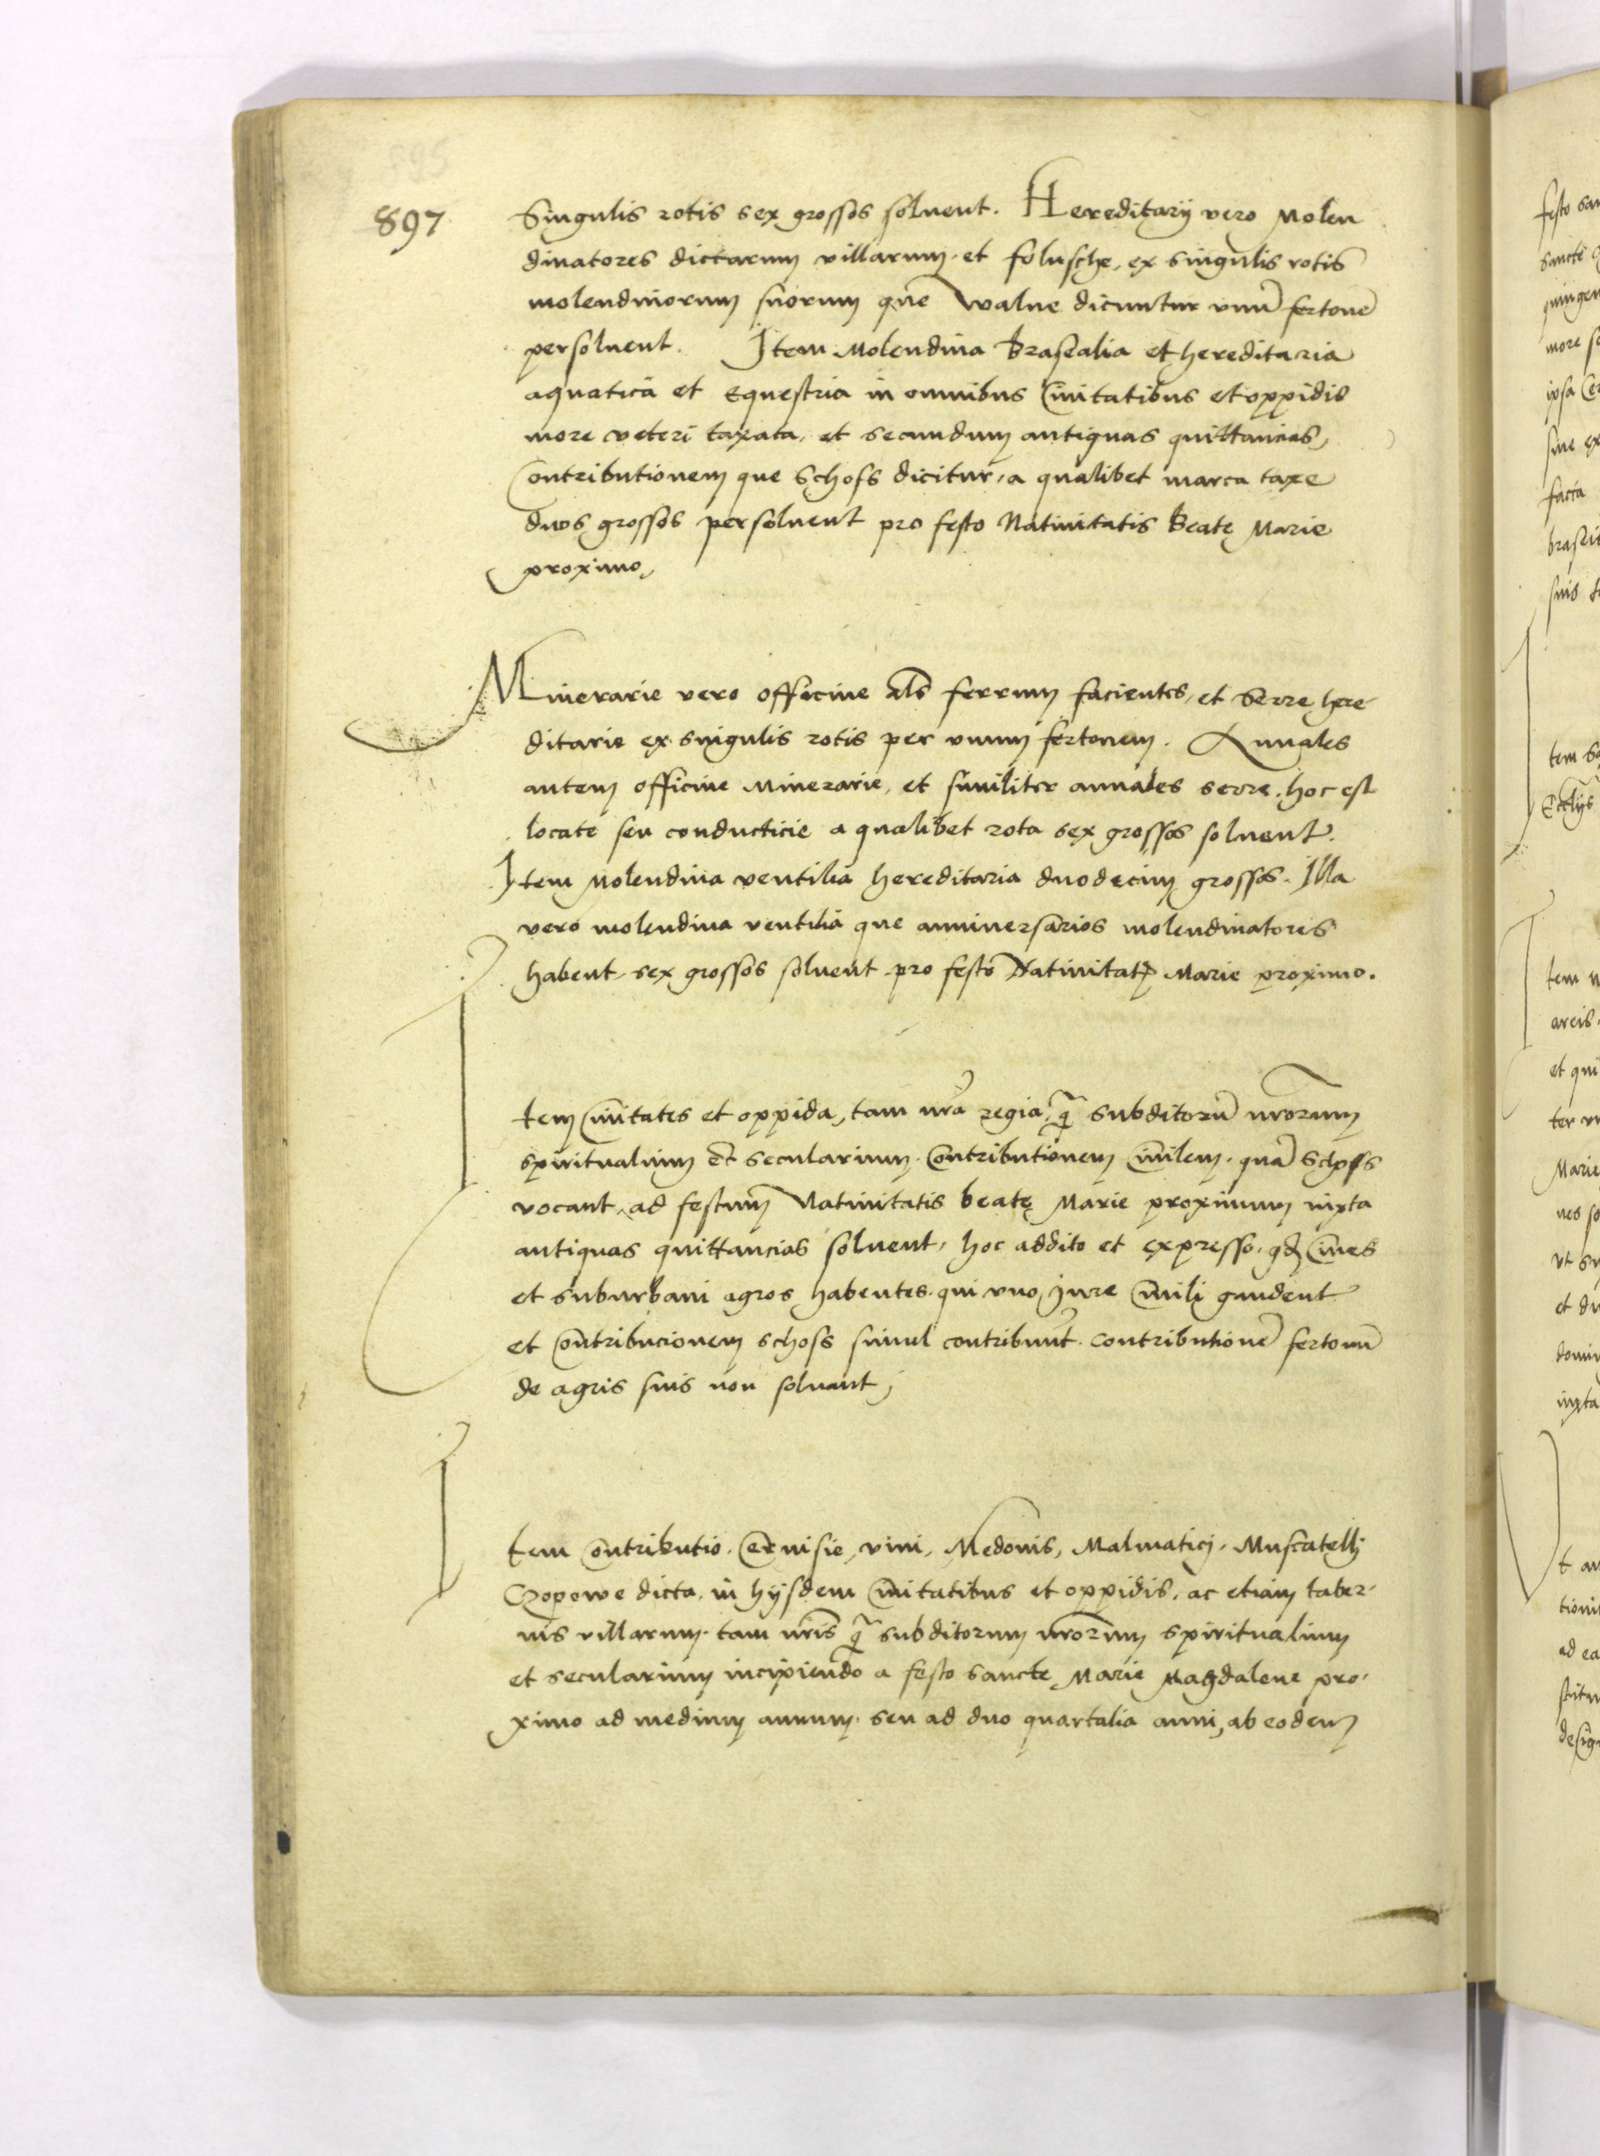 895
897
Singulis rotis sex grossos solvent. Hereditarij vero Molen
dinatores dictarum villarum et folusche, ex singulis rotis
molendinorum suorum que walne dicuntur unū fertonē
persolvent. Item Molendina Brasealia et hereditaria
aquatica et Equestria in omnibus Civitatibus et oppidis
more veteri taxata, et secundum antiquas quittancias,
Contributionem que Schoss dicitur, a qualibet marca taxe
duos grossos persolvent pro festo Nativitatis Beatę Marie
proximo,
Minerarie vero officine als ferrum facientes, et Serre here
ditarie ex singulis rotis per unum fertonem. Annales
autem officine Minerarie, et similiter annales serre, hoc est
locate seu conducticie a qualibet rota sex grossos solvent.
Item Molendina ventilia hereditaria duodecim grossos. Illa
vero molendina ventilia que anniversarios molendinatores
habent, sex grossos solvent pro festo Nativitatꝭ Marie proximo.
Item Civitates et oppida, tam nrā regia, ꝙ̃ subditorū nrōrum
spiritualium et secularium. Contributionem civilem, quā Schoss
vocant, ad festum Nativitatis beatę Marie proximum iuxta
antiquas quittancias solvent, hoc addito et expresso, qđ Cives
et suburbani agros habentes, qui uno iure Civili gaudent
et Contribucionem schoss simul contribuūt. Contributionē fertonū
de agris suis non solvant,
Item Contributio, Cervisie, vini, Medonis, Malmatici, Muscatelli
Czopowe dicta, in hijsdem Civitatibus et oppidis, ac etiam taber
nis villarum, tam nrīs ꝙ̃ subditorum nrōrum spiritualium
et secularium incipiendo a festo Sancte Marie Magdalene pro
ximo ad medium annum, seu ad duo quartalia anni, ab eodem